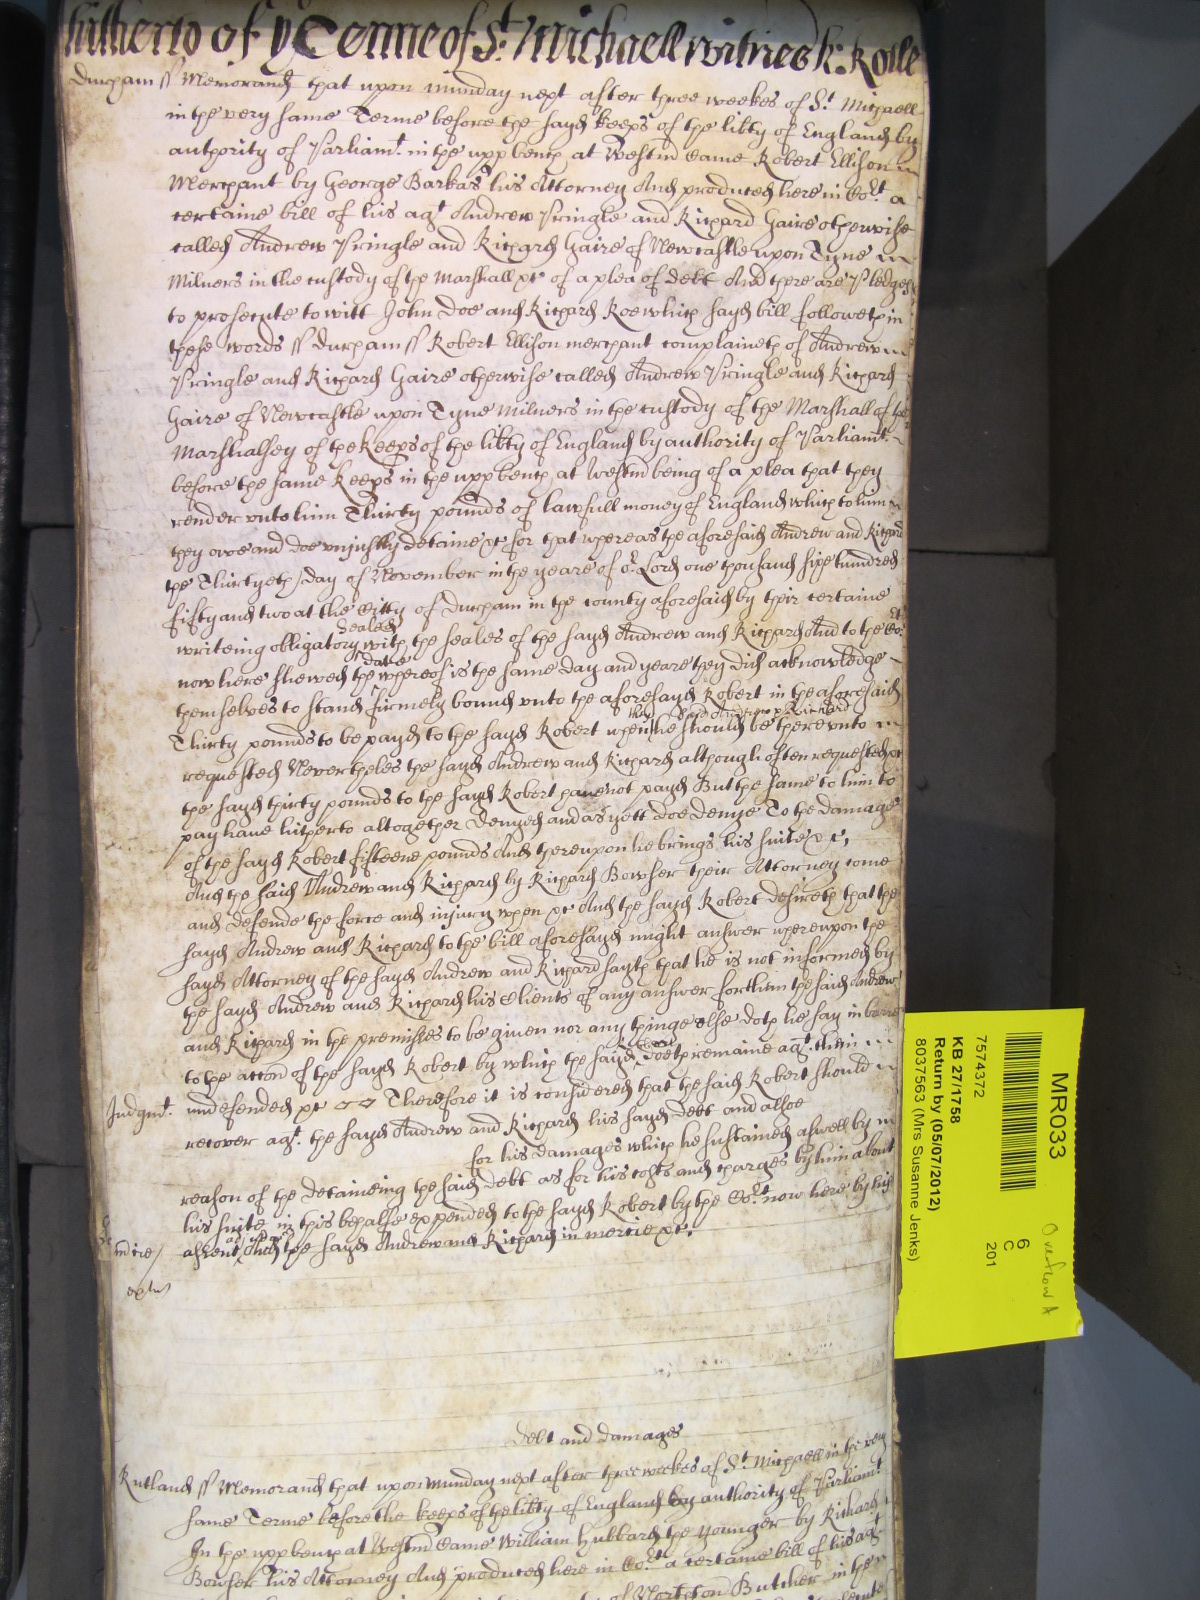 hitherto of ye Terme of St. Michaell witnes H: Rolle
Durham ss Memorand that upon munday next after three weekes of St. Michaell
in the very same Terme before the sayd keeps of the libty of England by
authority of Parliamt. in the upp bench at Westm Came Robert Ellison
Merchant by George Barkas his Attorney And produced here in Cort. a
certaine bill of his agt Andrew Pringle and Richard Gaire otherwise
called Andrew Pringle and Richard Gaire of Newcastle upon Tyne
Milners in the custody of the Marshall &c of a plea of debt And there are Pledges
to prosecute to witt John Doe and Richard Roe which sayd bill followeth in
these words ss Durham ss Robert Ellison merchant complaineth of Andrew
Pringle and Richard Gaire otherwise called Andrew Pringle and Richard
Gaire of Newcastle upon Tyne Milners in the custody of the Marshall of the
Marshalsey of the Keeps of the libty of England by authority of Parliamt.
before the same Keeps in the upp bench at Westm being of a plea that they
render unto him Thirty pounds of lawfull money of England which to him
they owe and doe unjustly detaine &c for that whereas the aforesaid Andrew and Richard
the Thirtyeth day of November in the yeare of or. Lord one thousand sixe hundred
fifty and two at the Citty of Durham in the county aforesaid by their certaine
writeing obligatory sealed with the seales of the sayd Andrew and Richard And to the Cort.
now here shewed the date whereof is the same day and yeare they did acknowledge
themselves to stand firmely bound unto the aforesayd Robert in the aforesaid
Thirty pounds to be payd to the sayd Robert when they the said Andrew & Richard he should be thereunto
requested Nevertheles the sayd Andrew and Richard although often requested &c
the sayd thirty pounds to the sayd Robert have not payd But the same to him to
pay have hitherto altogether denyed and as yett doe denye To the damage
of the sayd Robert fifteene pounds And thereupon he brings his suite &c,
And the said Andrew and Richard by Richard Bowser their Attorney come
and defende the force and injury when &c And the sayd Robert desireth that the
sayd Andrew and Richard to the bill aforesayd might answer whereupon the
sayd Attorney of the sayd Andrew and Richard sayth that he is not informed by
the sayd Andrew and Richard his Clients of any answer for them the said Andrew
and Richard in the premisses to be given nor any thinge else doth he say in barre
to the accon of the sayd Robert by which the sayd Robert doeth remaine agt. them
Judgmt. undefended &c Therefore it is considered that the said Robert should
recover agt. the sayd Andrew and Richard his sayd debt and allsoe
for his damages which he sustained aswell by
reason of the detaineing the said debt as for his costs and charges by him about
his suite in this behalfe expended to the sayd Robert by the Cort. now here by his
assent And the sayd Andrew and Richard in mercie &c.
Debt and damages
Rutland ss Memorand that upon munday next after three weekes of St. Michaell in the very
same Terme before the keeps of the libty of England by authority of Parliamt
In the upp bench at Westm Came William Hubbard the younger by Richard
Bowser his Attorney And produced here in Cort. a certaine bill of his agt.
Butcher in the
MR033
7574372
KB 27/1758
Return by (05/07/2012)
8037563 (Mrs Susanne Jenks)
6
C
201
Overflow A